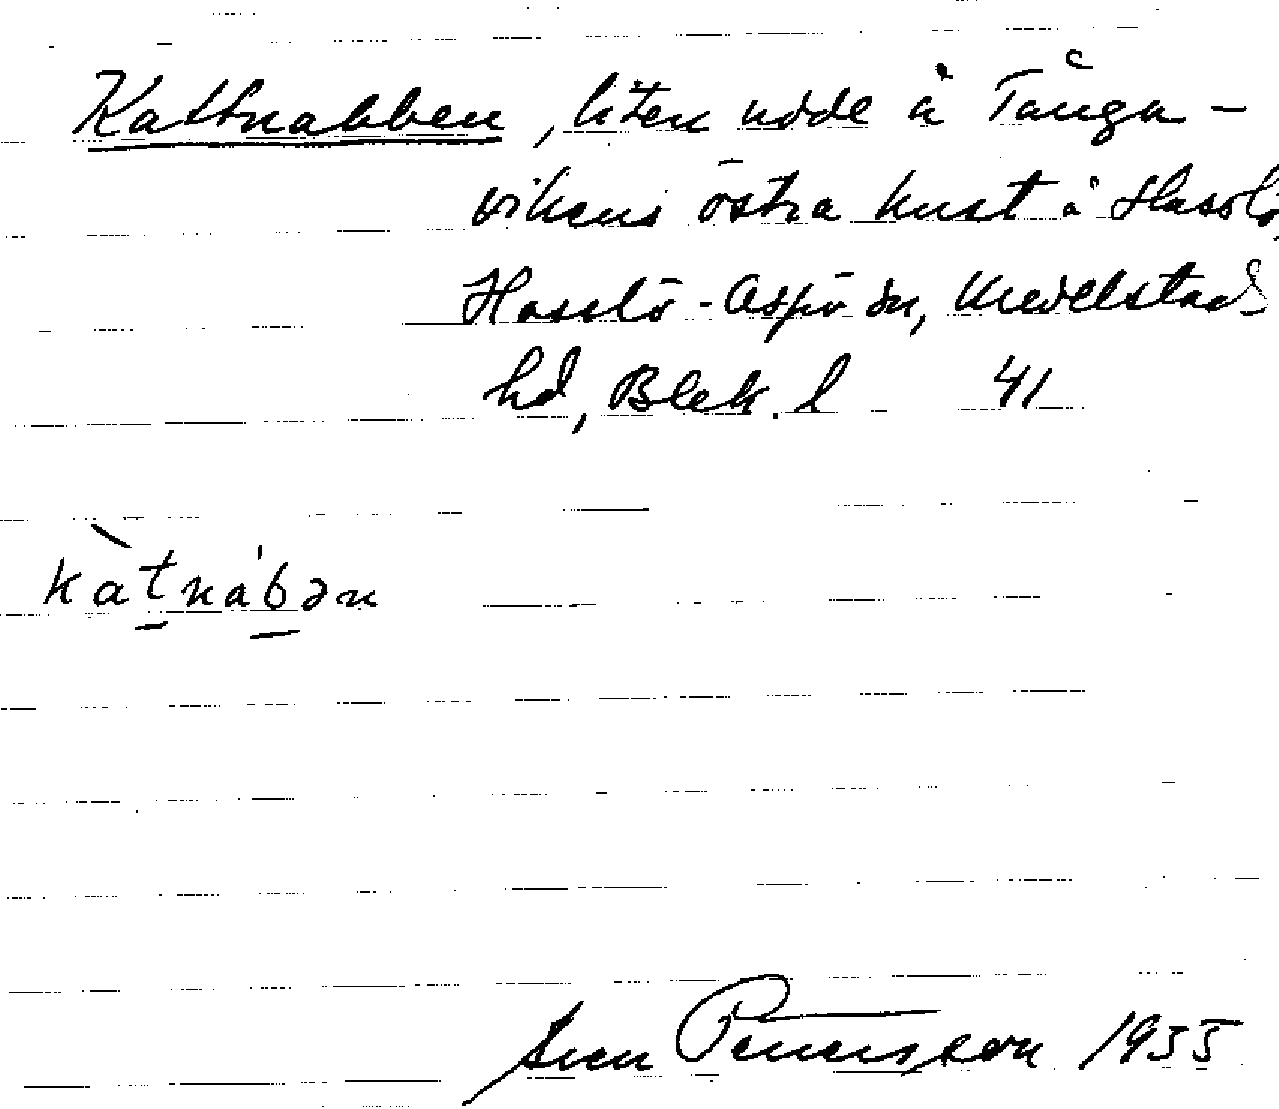 Kattnabben, liten udde å Tånga-
vikens östra kust å Hasslö,
Hasslö-Aspö sn, Medelstad
hd, Blek. l 41
kàtnábən
Sven Petersson 1955